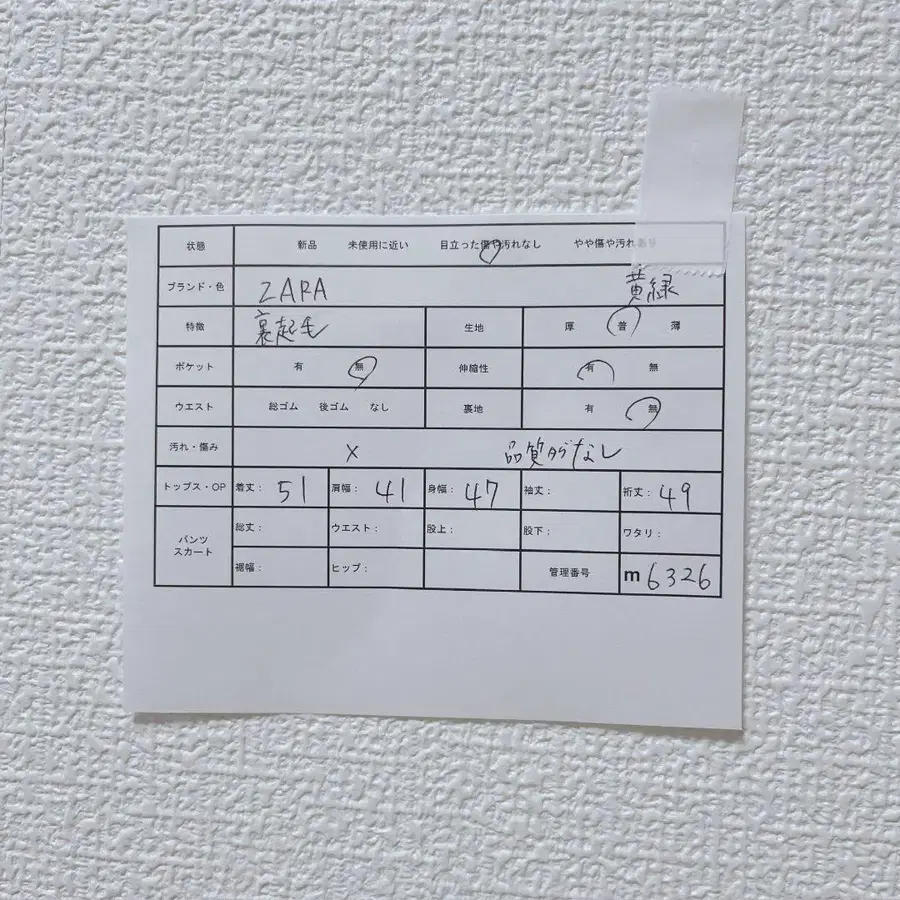 状態 新品 未使用に近い 目立った傷や汚れなし やや傷や汚れあり
ブランド・色 ZARA 黄緑
特徴 裏起毛 生地 厚 普 薄
ポケット 有 無 伸縮性 有 無
ウエスト 総ゴム 後ゴム なし 裏地 有 無
汚れ・傷み × 品質タグなし
トップス・OP 着丈: 51 肩幅: 41 身幅: 47 袖丈: 裄丈: 49
パンツ スカート 総丈: ウエスト: 股上: 股下: ワタリ:
裾幅: ヒップ: 管理番号 m 6326